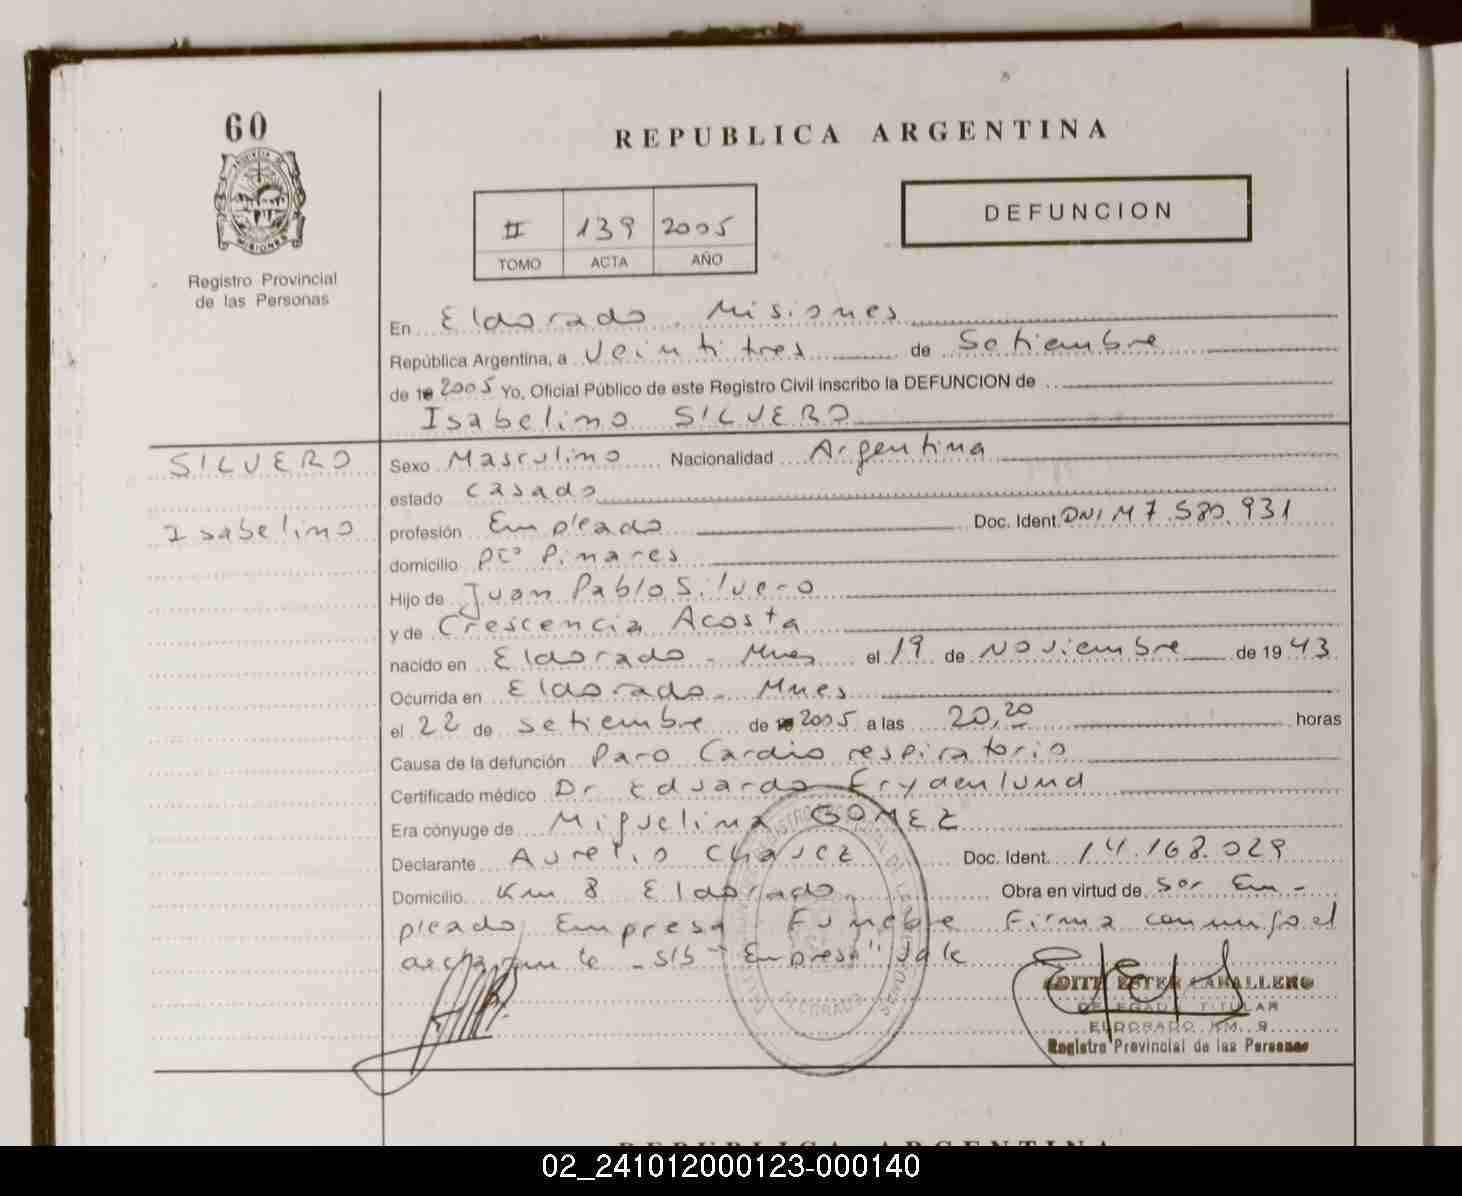 60
REPUBLICA ARGENTINA
DEFUNCION
II 139 2005
TOMO ACTA AÑO
Registro Provincial
de las Personas
En Eldorado. Misiones
República Argentina, a veintitres de Setiembre
de 19 2005 Yo, Oficial Público de este Registro Civil inscribo la DEFUNCION de
Isabelino SILVERO
SILVERO
Isabelino
Sexo Masculino Nacionalidad Argentina
estado casado
profesión Empleado Doc. Ident. DNI M 7.580.931
domicilio Pto Pinares
Hijo de Juan Pablo Silvero
y de Crescencia Acosta
nacido en Eldorado - Mnes el 19 de Noviembre de 19 43
Ocurrida en Eldorado - Mnes
el 22 de Setiembre de 19 2005 a las 20,20 horas
Causa de la defunción Paro Cardio respiratorio
Certificado médico Dr Eduardo Frydenlund
Era cónyuge de Miguelina GOMEZ
Declarante Aurelio Chavez Doc. Ident. 14.168.029
Domicilio Km 8 Eldorado Obra en virtud de Ser Em-
pleado Empresa Funebre Firma conmigo el
declarante - S/b "Empresa" Vale
EDITH ESTER CABALLERO
DELEGADA TITULAR
ELDORADO KM. 9
Registro Provincial de las Personas
REPUBLICA ARGENTINA
02_241012000123-000140